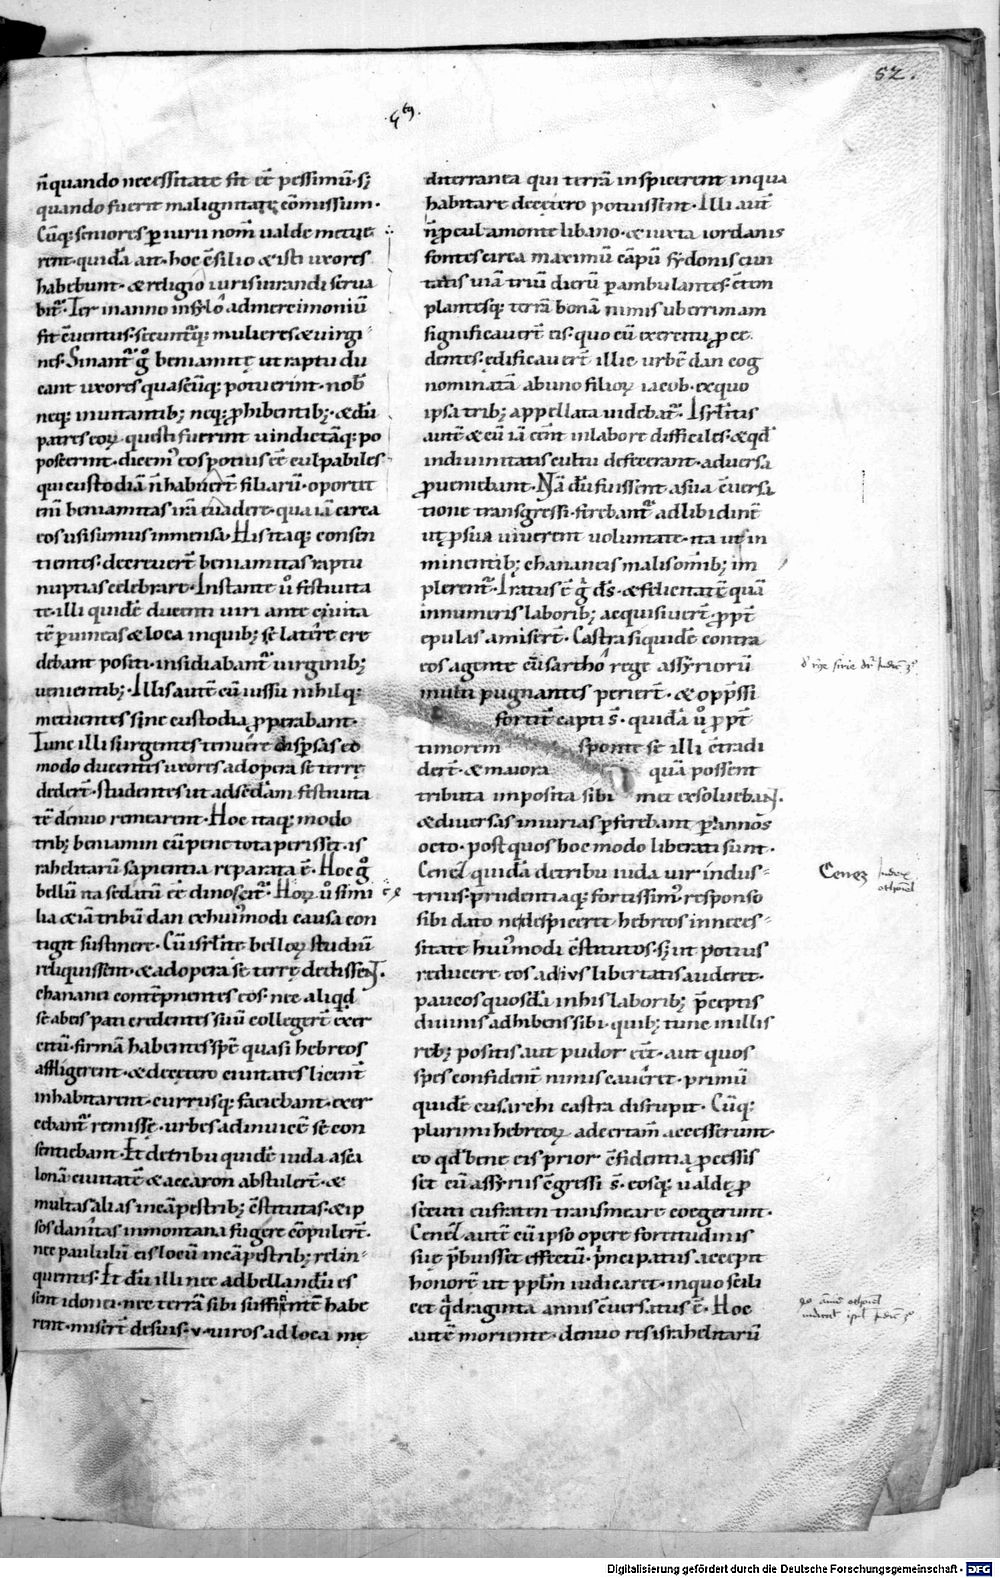 52.
.5tꝰ.
n̄ quando necessitate fit ee̅ pessimū· sꝫ
quando fuerit malignitate c̄missum·
Cūqꝫ seniores ꝑ iuru nom̄ ualde metue
rent· quidā ait· hoc ē silio & isti uxores
habebunt· & religio iurisiurandi serua
bit᷑· Ter in anno in sylo ad mereimoniū
fit c̄uentus· secuntūqꝫ mulieres & uirgi
nes· Sinant᷑ g̊ beniamitę ut raptu du
cant uxores quascūqꝫ potuerint· nob̄
neqꝫ inuitantibꝫ neqꝫ ꝓhibentibꝫ· & dū
patres eoꝝ questi fuerint uindictāqꝫ po
poscerint· dicem᷒ eos potius ee̅ culpabiles
qui custodiā n̄ habuert̄ filiarū· oportet
eni̅ beniamitas irā euadere· qua iā circa
eos usi sumus inmensa· His itaqꝫ consen
tientes· decreuert̄ beniamitas raptu
nuptias celebrare· Instante ů festiuita
te· illi quidē ducenti uiri ante ciuita
tē ꝑ uineas & loca in quibꝫ se latere cre
debant positi· insidiabant᷑ uirginibꝫ
uenientibꝫ· Illis autē cū iussu nihilqꝫ
metuentes sine custodia ꝓperabant·
Tunc illi surgentes tenuere dispsas eo
modo ducentes uxores ad opera se terrę
dedert̄· studentes ut ad sedā̄m festiuita
tē denuo remearent· Hoc itaqꝫ modo
tribꝫ beniamin cū pene tota perisset· is
rahelitarū sapientia reparata ē· Hoc g̊
bellū ita sedatū ee̅ dinoscit᷑· Hoꝝ ů simi
lia & iā tribū dan ex hui᷒modi causa con
tigit sustinere· Cū isrl̄ite belloꝝ studiū
reliquissent· & ad opera se terrę dedissent·
chananei contēpnentes eos· nec aliqd̄
se ab eis pati credentes suū collegert̄ exer
citū· firmā habentes spē quasi hebreos
affligerent· & decetero ciuitates licent̄
inhabitarent· currusqꝫ faciebant· exer
cebant᷑ remisse· urbes ad inuicē se con
sentiebant· Et de tribu quidē iuda asca
lonā ciuitatē & accaron abstulert̄· &
multas alias in cāpestribꝫ c̄stitutas· & ip
sos danitas in montana fugere cōpulert̄·
nec paululū eis locū in cāpestribꝫ relin
quentes· Et dū illi nec ad bellandū es
sent idonei· nec terrā sibi sufficientē habe
rent· misert̄ de suis· v· uiros ad loca me
diterranea qui terrā inspicerent in qua
habitare decetero potuissent· Illi aut̄
n̄ ꝓcul a monte libano· & iuxta iordanis
fontes circa maximū cāpū sydonis ciui
tatis uiā triū dierū ꝑambulantes· c̄tem
plantesqꝫ terrā bonā nimis uberrimam
significauert̄ eis· quo cū exercitu ꝓce
dentes· edificauert̄ illic urbē dan cog
nominatā ab uno filioꝝ iacob· ex quo
ipsa tribꝫ appellata uidebat᷑· Isrl̄itis
autē & cū iā cēnt in labore difficiles· & qd̄
in diuinitatis cultu defecerant· aduersa
ꝓueniebant· Nā dū fuissent a sua c̄uersa
tione transgressi· ferebant᷑ ad libidinē
ut ꝓ sua uiuerent uoluntate· ita ut in
minentibꝫ chananeis malis omibꝫ im
plerent᷑· Iratus ē g̊ d̄s· & felicitatē quā
innumeris laboribꝫ acquisiuert̄· ꝓpt̄
epulas amisert̄· Castra siquidē contra
eos agente cusartho rege assyrioru̅
multi pugnantes perierт̄· & opp̄ssi
fortit̄ capti s̄· quidā ů ꝓpt̄
timorem sponte se illi c̄tradi
dert̄· & maiora quā possent
tributa imposita sibi met exsoluebant·
& diuersas iniurias ꝑferebant ꝑ annos
octo· post quos hoc modo liberati sunt·
Cenez quidā de tribu iuda uir indus
trius· prudentiaqꝫ fortissim᷒ responso
sibi dato ne despiceret hebreos in neces
sitate hui᷒modi c̄stitutos· sꝫ ut potius
reducere eos ad ius libertatis auderet·
paucos quosdā in his laboribꝫ p̄ceptis
diuinis adhibens sibi· quibꝫ tunc in illis
rebꝫ positis aut pudor eet̄· aut quos
spes confident̄ nimis cauēret· primū
quidē cusarchi castra disrupit· Cūqꝫ
plurimi hebreoꝝ ad certam̄ accesserunt·
eo qd̄ bene eis prior c̄fidentia ꝓcessis
set cū assyrus c̄gressi s̄· eosqꝫ ualde ꝓ
secuti eufraten transmeare coegerunt·
Cenez autē cū ipso opere fortitudinis
suę p̄buisset effectū· p̄ncipatus accepit
honorē ut ppl̄m iudicaret· in quo scili
cet qͣdraginta annis c̄uersatus ē· Hoc
autē moriente· denuo res israhelitarū
Cenez Iudex
othonіel